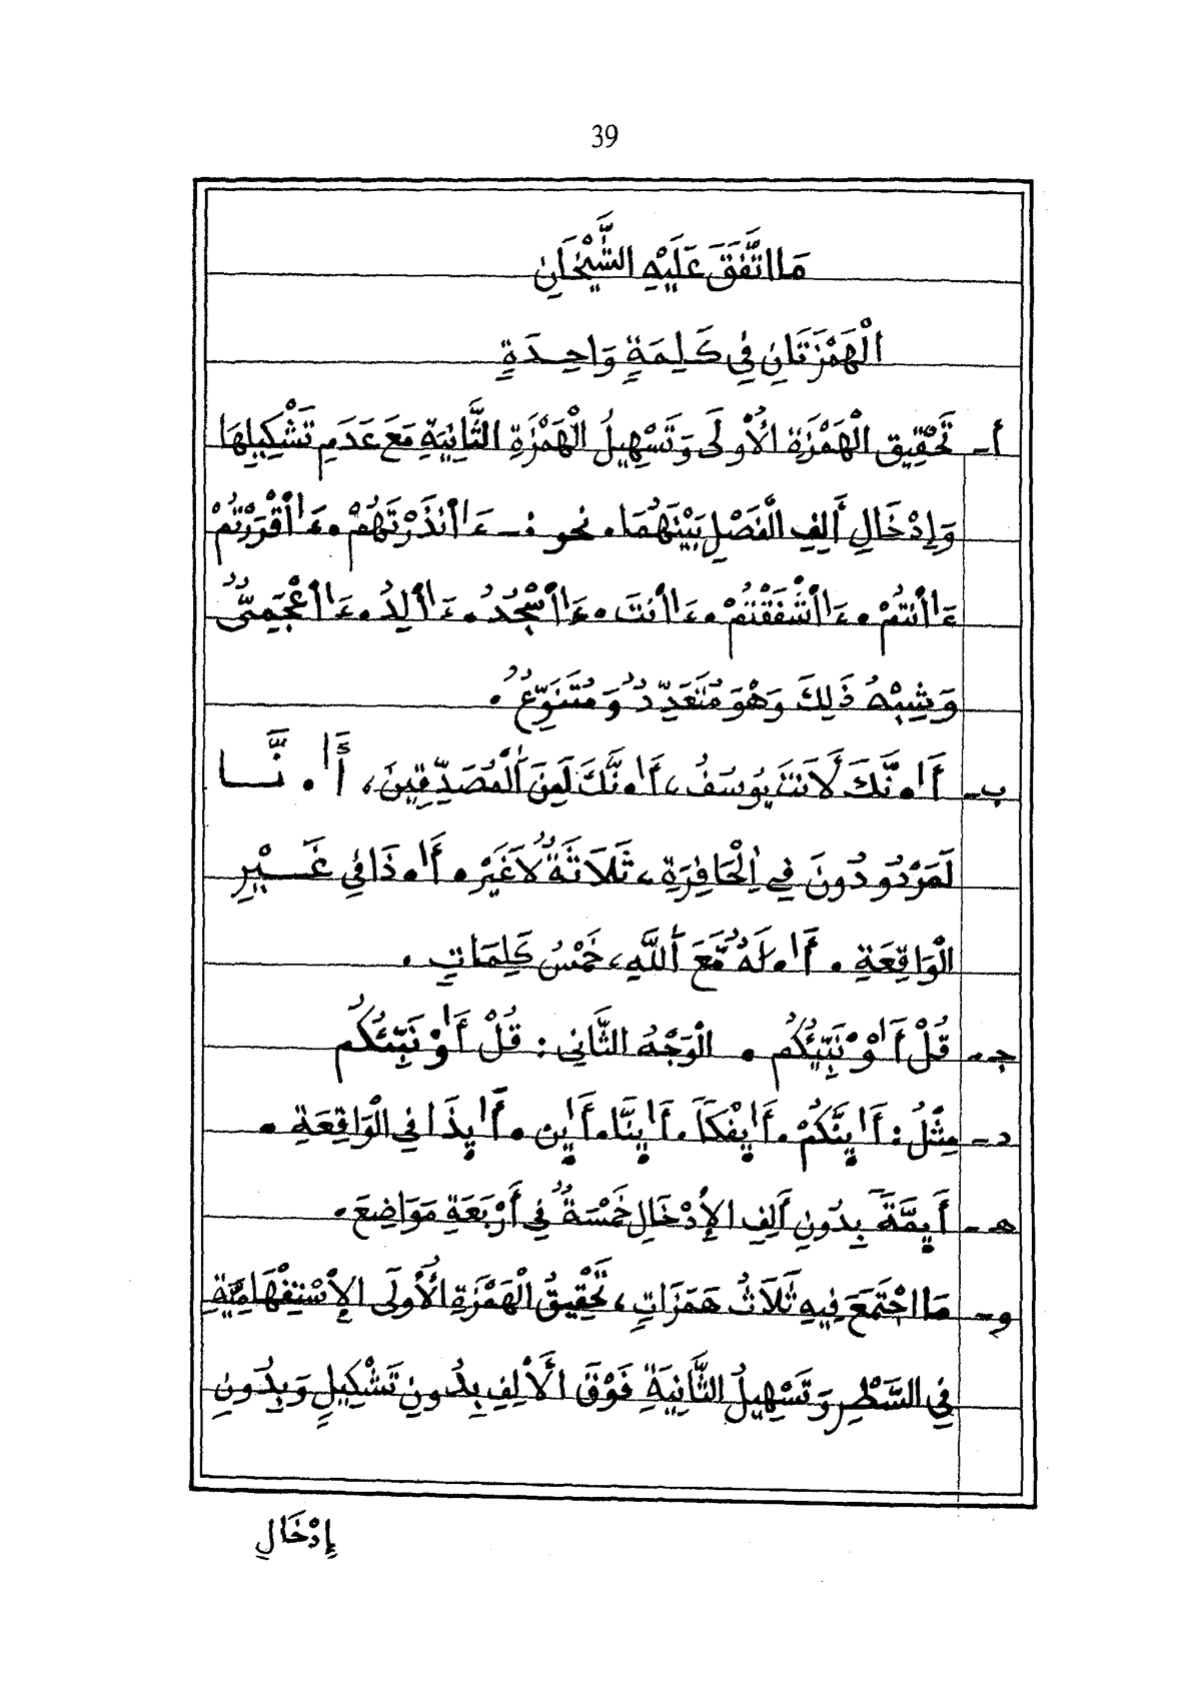 39
مَا اتَّفَقَ عَلَيْهِ الشَّيْخَانِ
الْهَمْزَتَانِ فِي كَلِمَةٍ وَاحِدَةٍ
أ - تَحْقِيق الْهَمْزَةِ الْأُولَى وَتَسْهِيلُ الْهَمْزَةِ الثَّانِيَةِ مَعَ عَدَمِ تَشْكِيلِهَا
وَإِدْخَالِ أَلِفِ الْفَصْلِ بَيْنَهُمَا. نحو :- ءَاا۬نذَرْتَهُمْ. ءَاا۬قْرَرْتُمْ
ءَاا۬نتُمْ. ءَاا۬شْفَقْتُمْ. ءَاا۬نتَ. ءَاا۬سْجُدُ. ءَاا۬لِدُ. ءَاا۬عْجَمِىٌّ
وَشِبْهُ ذَلِكَ وَهْوَ مُتَعَدِّدٌ وَمُتَنَوِّعٌ.
ب - أَا.نَّكَ لَأَنتَ يُوسُفُ، أَا.نَّكَ لَمِنَ ٱلْمُصَدِّقِينَ، أَا.نَّا
لَمَرْدُودُونَ فِي الْحَافِرَةِ، ثَلَاثَةٌ لَا غَيْرُ. أَا.ذَا فِي غَيْرِ
الْوَاقِعَةِ. أَا.لَهٌ مَّعَ ٱللَّهِ، خَمْسُ كَلِمَاتٍ.
ج - قُلْ أَاوْ۬نَبِّيُكُم. الْوَجْهُ الثَّانِي : قُلْ أَاوْ۬نَبِّئُكُم
د - مِثْلُ : أَاينَّكُمْ. أَايفْكاً. أَاينَّا. أَاين. أَايذَا فِي الْوَاقِعَةِ.
هـ - أَيمَّةً بِدُونِ أَلِفِ الإِدْخَالِ خَمْسَةٌ فِي أَرْبَعَةِ مَوَاضِعَ.
و - مَا اجْتَمَعَ فِيهِ ثَلَاثُ هَمَزَاتٍ، تَحْقِيقُ الْهَمْزَةِ الْأُولَى الِاسْتِفْهَامِيَّةِ
فِي السَّطْرِ وَتَسْهِيلُ الثَّانِيَةِ فَوْقَ الْأَلِفِ بِدُونِ تَشْكِيلٍ وَبِدُونِ
إِدْخَالِ